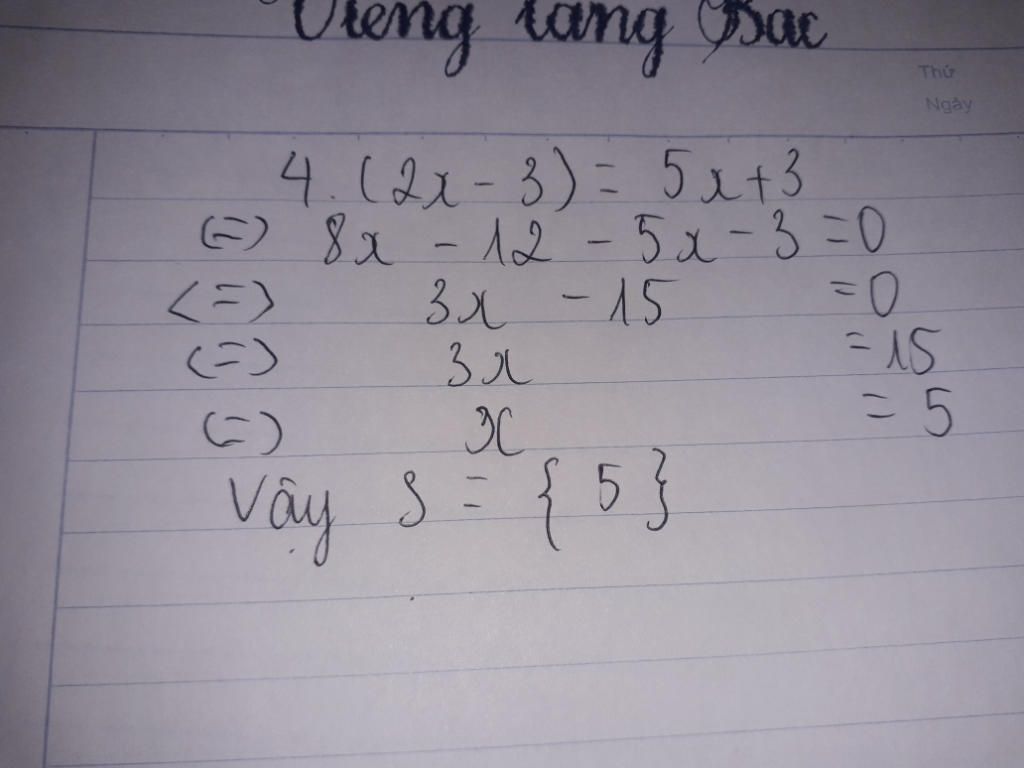 Viếng lăng Bác
Thứ
Ngày
4. (2x - 3) = 5x + 3
(=) 8x - 12 - 5x - 3 = 0
<=> 3x - 15 = 0
(=) 3x = 15
(=) x = 5
Vậy S = { 5 }